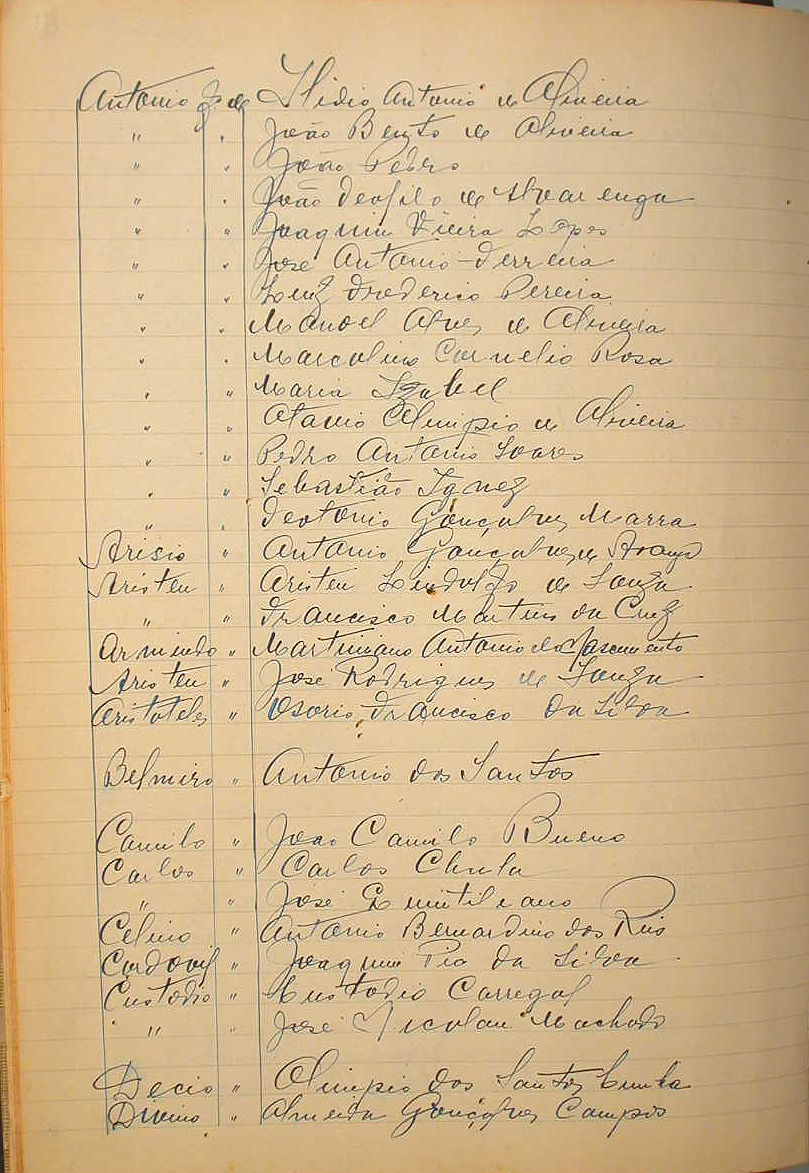 Antonio fº de Ilidio Antonio de Oliveira
" " João Bento de Oliveira
" " João Pedro
" " João Teofilo de Alvarenga
" " Joaquim Vieira Lopes
" " José Antonio Ferreira
" " Luiz Frederico Pereira
" " Manoel Alves de Oliveira
" " Marcolino Cornelio Rosa
" " Maria Izabel
" " Otavio Olimpio de Oliveira
" " Pedro Antonio Soares
" " Sebastião Ignez
" " Teotonio Gonçalves Marra
Arisio " Antonio Gonçalves de Araujo
Aristeu " Aristeu Lindolfo de Souza
" " Francisco Martins da Cruz
Armindo " Martiniano Antonio do Nascimento
Aristeu " José Rodrigues de Souza
Aristoteles " Osorio Francisco da Silva
Belmiro " Antonio dos Santos
Camilo " João Camilo Bueno
Carlos " Carlos Chula
" " José Quintiliano
Celino " Antonio Bernardino dos Reis
Cordovil " Joaquim Pio da Silva
Custodio " Custodio Carregal
" " José Nicolau Machado
Decio " Olimpio dos Santos Cunha
Divino " Almeida Gonçalves Campos